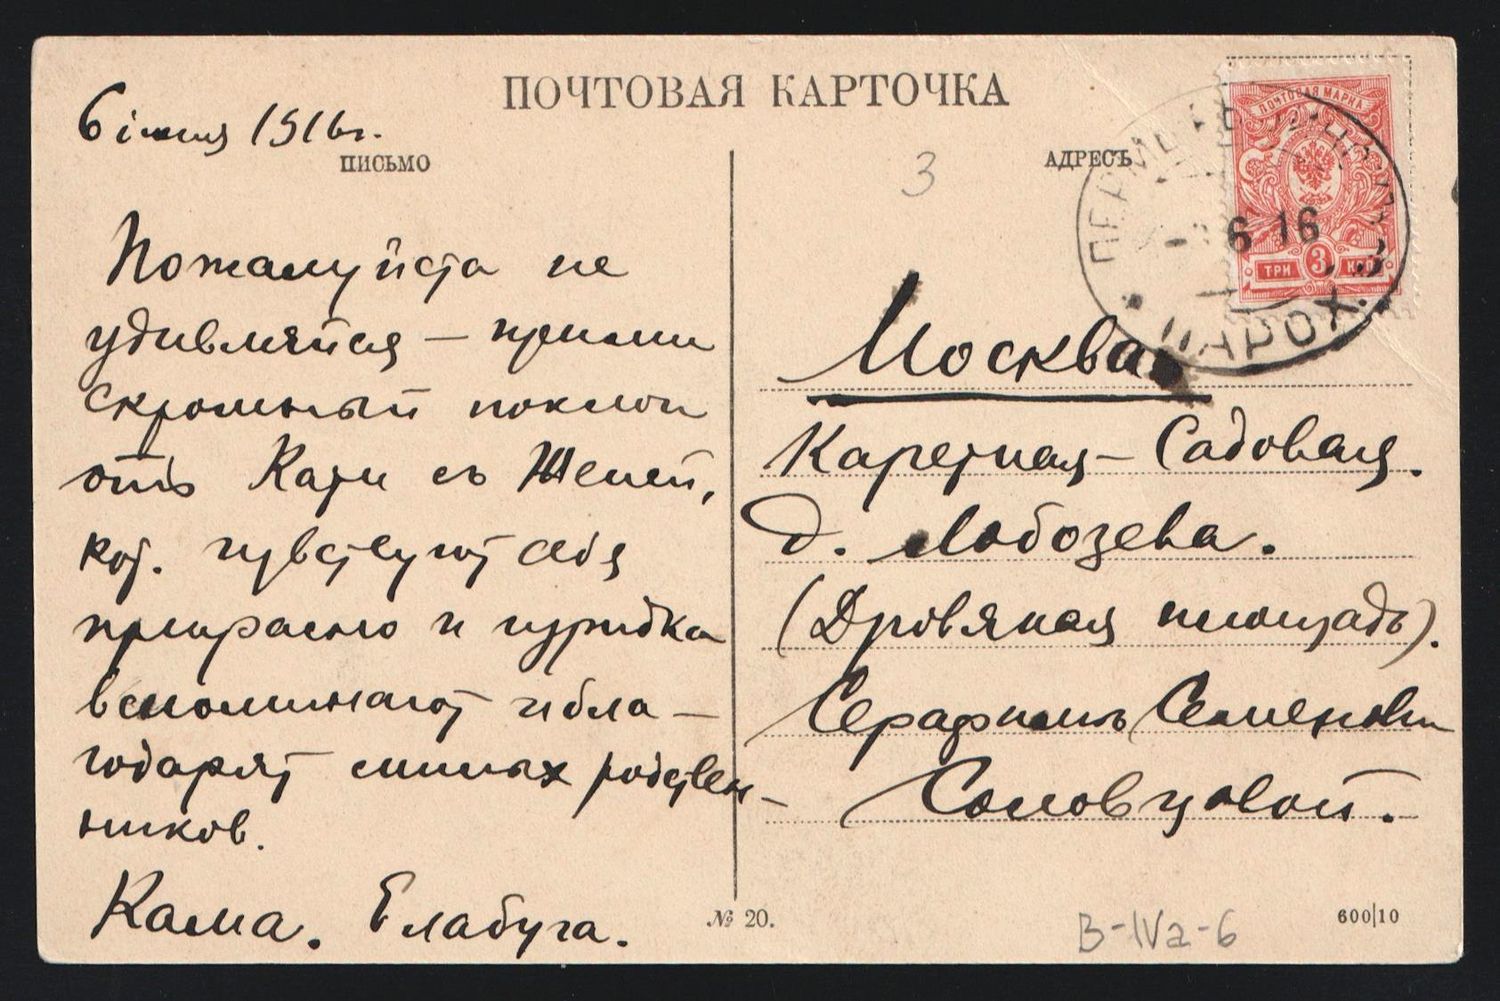 ПОЧТОВАЯ КАРТОЧКА
6 іюня 1916г.
ПИСЬМО
Пожалуйста не
удивляйся – прими
скромный поклон
отъ Кати съ Женей,
кот. чувствуют себя
прекрасно и изредка
вспоминают и бла–
годарят милых родствен–
ников.
Кама. Елабуга.
3
АДРЕСЪ
ПОЧТОВАЯ МАРКА
ТРИ 3 КОП
6 16
ПАРОХ.
Москва
Каретная – Садовая.
д. Лобозева.
(Дровяная площадь).
Серафиме Семеновне
Соловцовой.
№ 20.
В-IVа-6
600|10